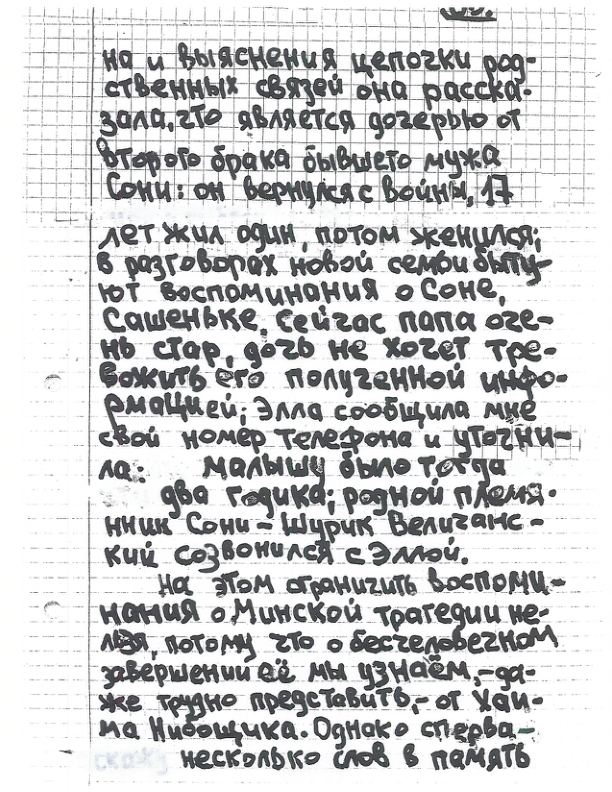 на и выяснения цепочки род-
ственных связей она расска-
зала, что является дочерью от
второго брака бывшего мужа
Сони: он вернулся с войны, 17
лет жил один, потом женился;
в разговорах новой семьи быту-
ют воспоминания о Соне,
Сашеньке, сейчас папа оче-
нь стар, дочь не хочет тре-
вожить его полученной инфо-
рмацией; Элла сообщила мне
свой номер телефона и уточни-
ла: малышу было тогда
два годика; родной племя-
нник Сони - Шурик Величанс-
кий созвонился с Эллой.
На этом ограничить воспоми-
нания о Минской трагедии не-
льзя, потому что о бесчеловечном
завершении её мы узнаём, - да-
же трудно представить, - от Хаи-
ма Нибощика. Однако сперва -
скажу несколько слов в память